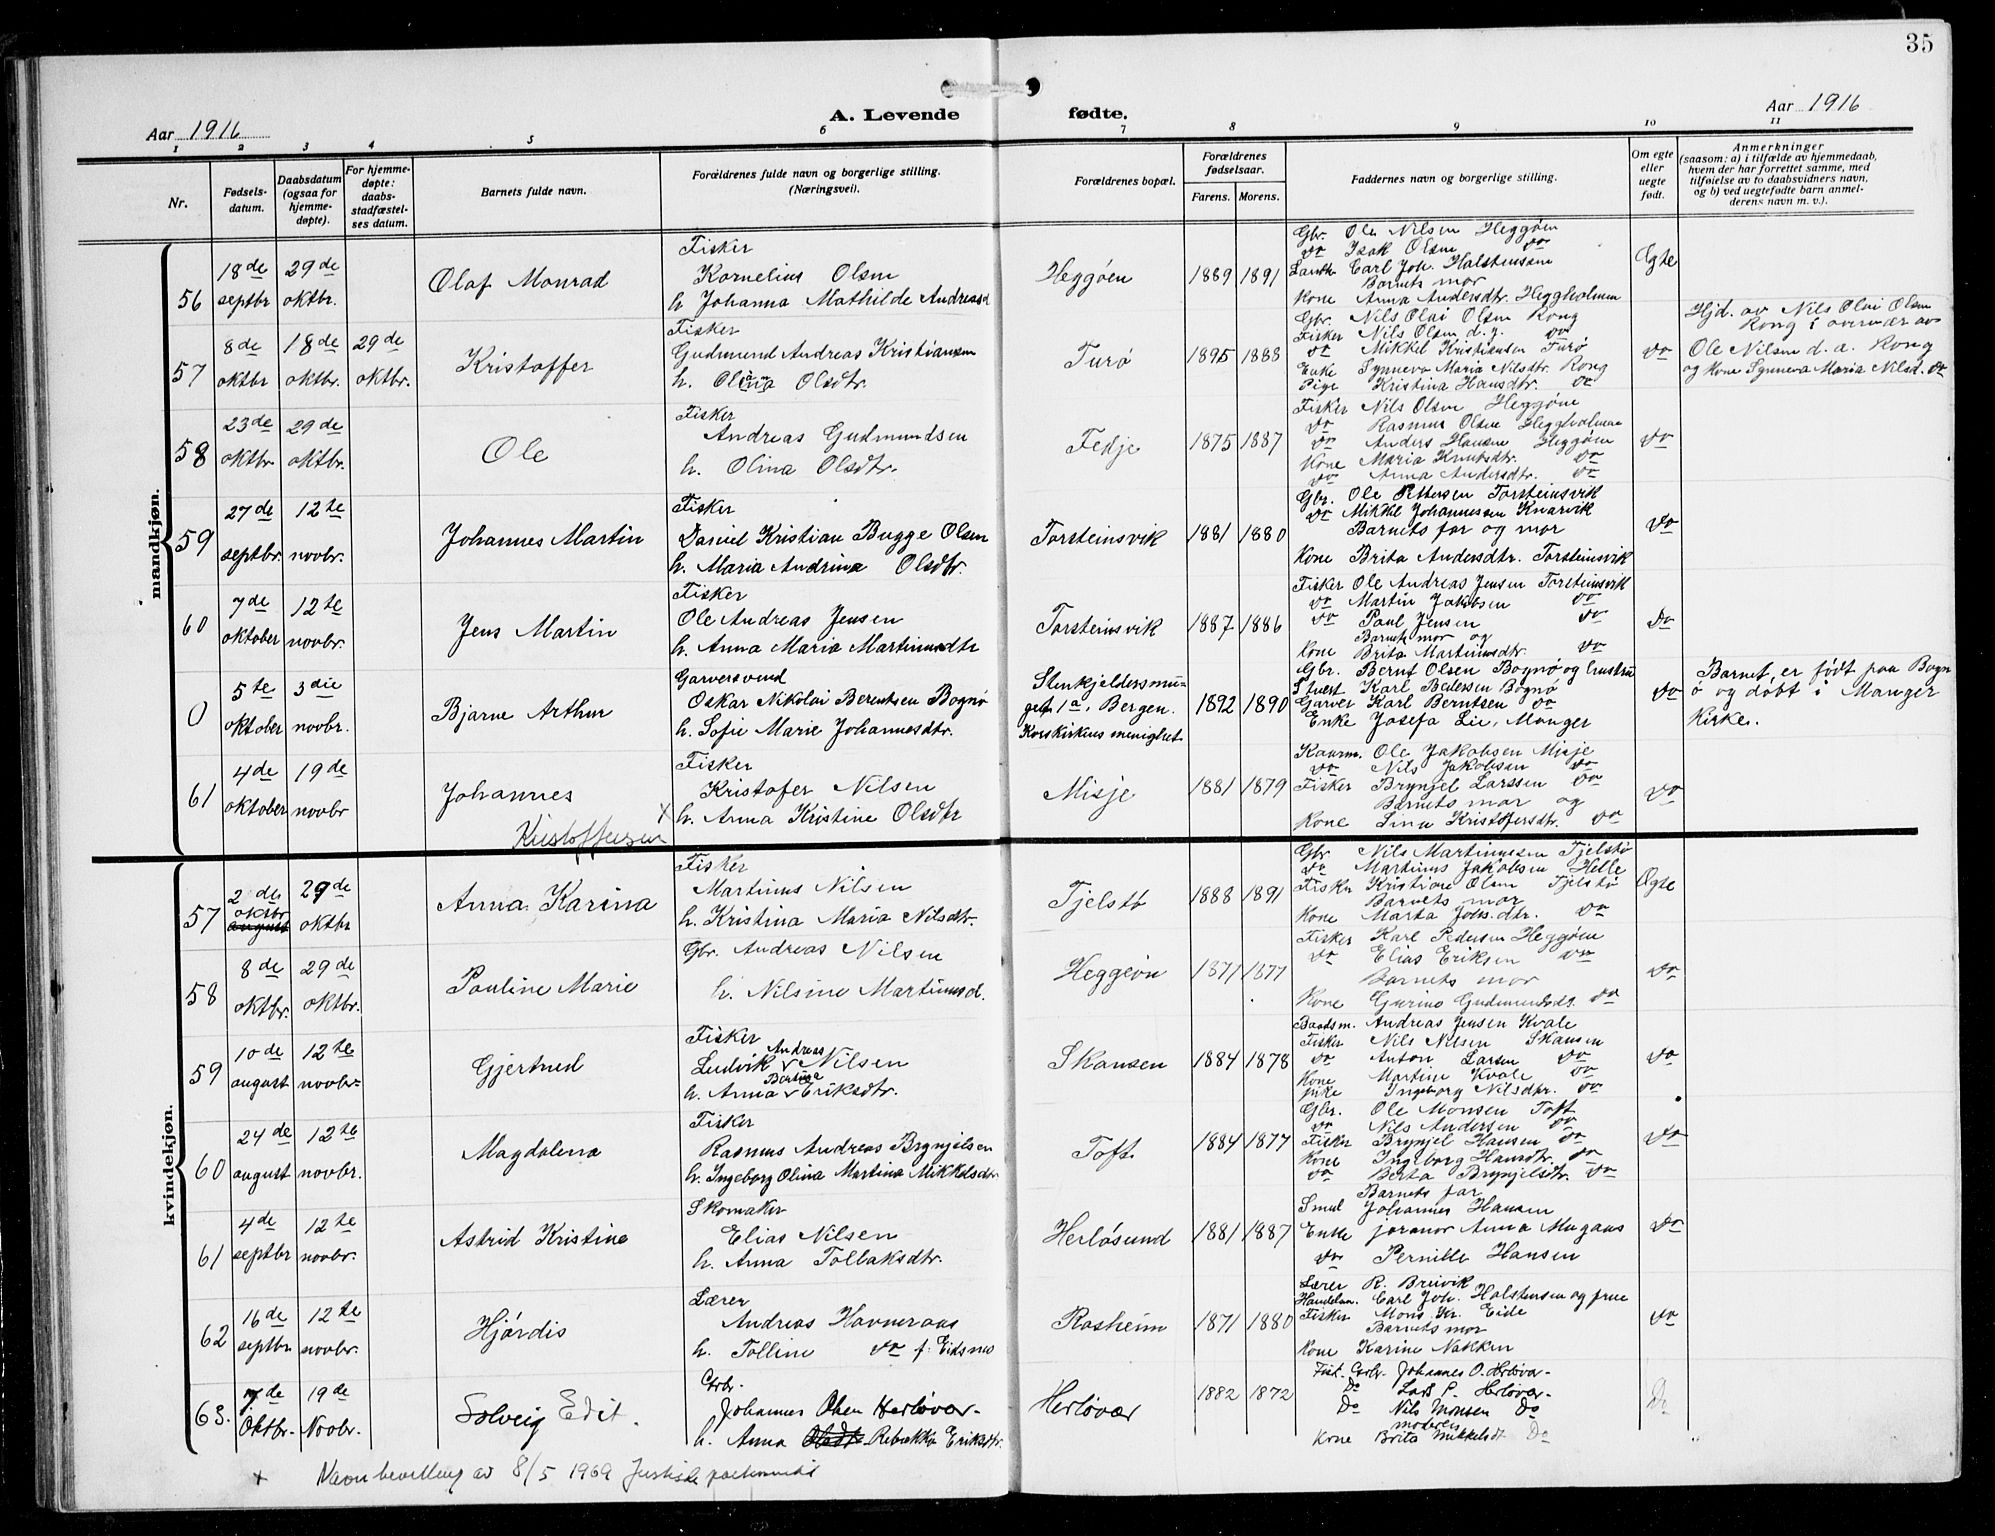 35
Aar 1916
A. Levende fødte.
Aar 1916
1 2 3 4 5 6 7 8 9 10 11
Nr.
Fødsels-
datum.
Daabsdatum
(ogsaa for
hjemme-
døpte).
For hjemme-
døpte:
daabs-
stadfæstel-
ses datum.
Barnets fulde navn.
Forældrenes fulde navn og borgerlige stilling.
(Næringsvei).
Forældrenes bopæl.
Forældrenes
fødselsaar.
Farens. Morens.
Faddernes navn og borgerlige stilling.
Om egte
eller
uegte
født.
Anmerkninger
(saasom: a) i tilfælde av hjemmedaab,
hvem der har forrettet samme, med
tilføielse av to daabsvidners navn,
og b) ved uegtefødte barn anmel-
derens navn m. v.).
mandkjøn.
56
18de septbr
29de oktbr.
Olaf Monrad
Fisker
Kornelius Olsen
h. Johanna Mathilde Andreasd
Heggøen
1889 1891
Gbr. Ole Nilsen Heggøen
do Isak Olsen do
Landh. Carl Joh. Halstensen
Barnets mor
Kone Anna Andersdtr. Heggholmen
Egte
57
8de oktbr
18de oktbr.
29de oktbr.
Kristoffer
Fisker
Gudmund Andreas Kristiansen
h. Oliana Olsdtr.
Turø
1895 1888
Gbr. Nils Olai Olsen Rong
Fisker Nils Olsen d.y. do
do Mikkel Kristiansen Turø
Enke Synneva Maria Nilsdtr. Rong
Pige Kristina Hansdtr. do
do
Hjd. av Nils Olai Olsen
Rong i overvær av
Ole Nilsen d. a. Rong
og Kone Synneva Maria Nilsd. do
58
23de oktbr
29de oktbr.
Ole
Fisker
Andreas Gudmundsen
h. Olina Olsdtr.
Fedje
1875 1887
Fisker Nils Olsen Heggøen
do Rasmus Olsen Heggholmen
do Anders Hansen Heggøen
Kone Maria Knutsdtr. do
do Anna Andersdtr. do
do
59
27de septbr.
12te novbr.
Johannes Martin
Fisker
Daniel Kristian Bugge Olsen
h. Maria Andrina Olsdtr.
Torsteinsvik
1881 1880
Gbr. Ole Pettersen Torsteinsvik
do Mikkel Johannessen Knarvik
Barnets far og mor
Kone Brita Andersdtr. Torsteinsvik
do
60
7de oktober
12te novbr.
Jens Martin
Fisker
Ole Andreas Jensen
h. Anna Maria Martinusdtr
Torsteinsvik
1887 1886
Fisker Ole Andreas Jensen Torsteinsvik
do Martin Jakobsen do
do Paul Jensen do
Barnets mor og
Kone Brita Martinusdtr. do
Do
0
5te oktober
3die novbr.
Bjarne Arthur
Garversvend
Oskar Nikolai Berentsen Bognø
h. Sofie Marie Johannesdtr.
Stenkjeldersmu-
get 1a, Bergen.
Korskirkens menighet
1892 1890
Gbr. Bernt Olsen Bognø og hustru
Karl Bognø
Garver Karl Berntsen do
Enke Josefa Lie, Manger
do
Barnet er født paa Bogn
ø og døbt i Manger
Kirke.
61
4de oktober
19de novbr
Johannes
Kristoffersen x
Fisker
Kristofer Nilsen
h. Anna Kristine Olsdtr
Misje
1881 1879
Kaarm. Ole Jakobsen Misje
do Nils Jakobsen do
Fisker Brynjel Larssen do
Barnets mor og
Kone Lina Kristofersdtr. do
do
kvindekjøn.
57
2de oktbr august
29de oktbr
Anna Karina
Fisker
Martinus Nilsen
h. Kristina Maria Nilsdtr.
Tjelstø
1888 1891
Gbr Nils Martinussen Tjelstø
do Martinus Jakobsen Helle
Fisker Kristian Olsen Tjelstø
Barnets mor
Kone Marta Johs.dtr. do
Egte
58
8de oktbr.
29de oktbr.
Pauline Marie
Gbr. Andreas Nilsen
h. Nilsine Martinusd.
Heggøen
1871 1877
Fisker Karl Pedersen Heggøen
do Elias Eriksen do
Barnets mor
Kone Gurine Gudmundsdt. do
do
59
10de august
12te novbr.
Gjertrud
Fisker
Ludvik Andreas Nilsen
h. Anna Bertina Eriksdtr.
Skansen
1884 1878
Baadsm. Andreas Jensen Kvale
Fisker Nils Nilsen Skansen
do Anton Larsen do
Kone Martine Kvale do
pike Ingeborg Nilsdtr. do
do
60
24de august
12te novbr.
Magdalena
Fisker
Rasmus Andreas Brynjelsen
h. Ingeborg Olina Martina Mikkelsdtr
Toft
1884 1877
Gbr. Ole Monsen Toft
do Nils Andersen do
Fisker Brynjel Hansen do
Kone Ingeborg Hansdtr. do
do Berta Brynjelsdtr. do
do
61
4de septbr
12te novbr.
Astrid Kristine
Skomaker
Elias Nilsen
h. Anna Tollaksdtr.
Herløsund
1881 1887
Barnets far
Smed Johannes Hansen
Enke jormor Anna Mugaas
do Pernille Hansen
do
62
16de septbr
12te novbr.
Hjørdis
Lærer
Andreas Havneraas
h. Tolline do f. Eidsnes
Rosheim
1871 1880
Lærer R. Breivik
Handelsm. Carl Joh. Halstensen og frue
Fisker Mons Kr. Eide
Barnets mor
Kone Karine Nakken
do
63.
7de Oktbr.
19de Novbr.
Solveig Edit.
Gbr.
Johannes Olsen Herløver-
h. Anna Olsdtr Rebekka Eriksdtr.
Herløvær
1882 1872
Fisk. Gbr. Johannes O. Herløvær-
Do Lars P. Herløver-
Do Nils Monsen Do
moderen
Kone Brita Mikkelsdt Do
Do
x Navnbevilling av 8/5 1969 Justisdepartementet